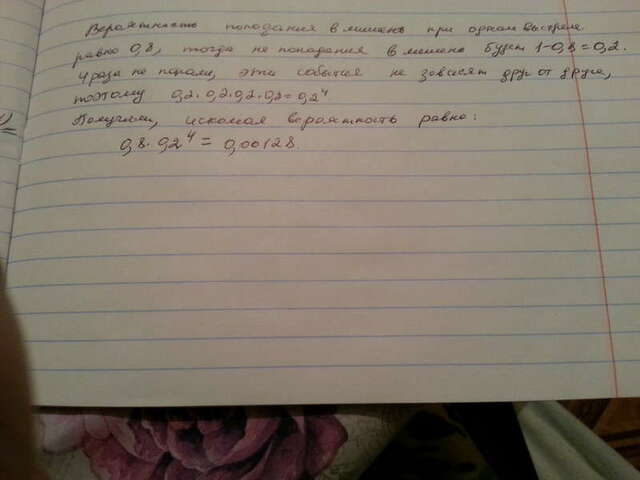 Вероятность попадания в мишень при одном выстреле
равно 0,8, тогда не попадания в мишень будет 1-0,8=0,2.
4 раза не попали, эти события не зависят друг от друга,
поэтому 0,2·0,2·0,2·0,2=0,2⁴
Получили, искомая вероятность равна:
0,8·0,2⁴ = 0,00128.